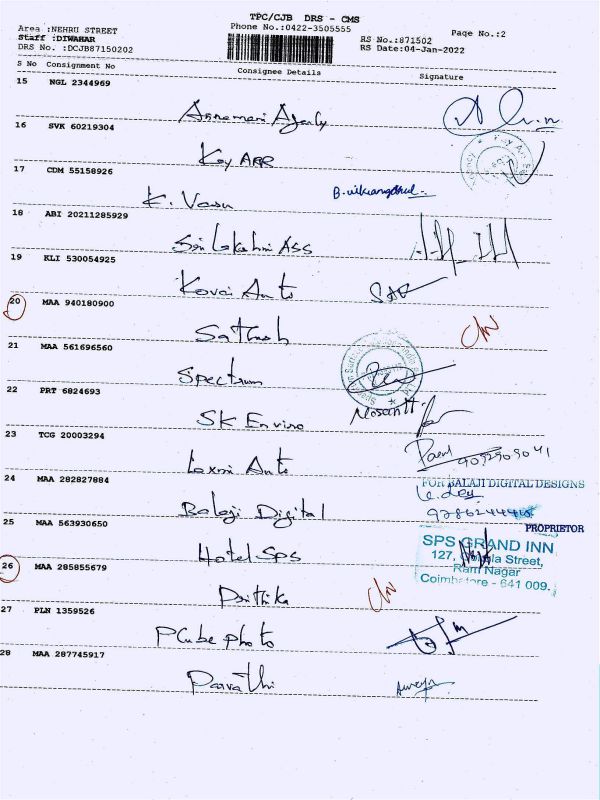 TPC/CJB DRS - CMS
Area :NEHRU STREET Phone No.:0422-3505555 Page No.:2
Staff :DIWAHAR RS No.:871502
DRS No. :DCJB87150202 RS Date:04-Jan-2022
S No Consignment No Consignee Details Signature
15 NGL 2344969
16 SVK 60219304
Key ARR
17 CDM 55158926
K. Vasu
18 ABI 20211285929
Sri Lakshmi Ass
19 KLI 530054925
Kovai Auto
20 MAA 940180900
Sathish
21 MAA 561696560
Spectrum
22 PRT 6824693
SK Enviro
23 TCG 20003294
Laxmi Auto
24 MAA 282827884
FOR BALAJI DIGITAL DESIGNS
Balaji Digital
PROPRIETOR
25 MAA 563930650
Hotel SPS
SPS GRAND INN
127, Street,
Ram Nagar
Coimbatore - 641 009.
26 MAA 285855679
Prithika
27 PLN 1359526
PCube photo
28 MAA 287745917
Parvathi